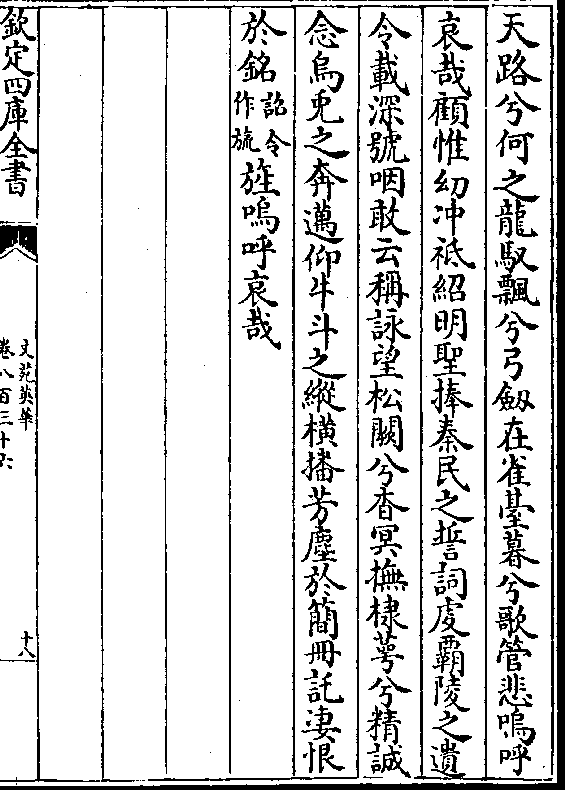 天路兮何之龍馭飄兮弓劔在雀臺暮兮歌管悲嗚呼
哀哉顧惟幼冲祗紹明聖捧秦民之誓詞虔覇陵之遺
令載深號咽敢云稱詠望松闕兮杳冥撫棣蕚兮精誠
念烏兎之奔邁仰牛斗之縱橫播芳塵於簡冊託凄恨
於銘詔令作旒旌嗚呼哀哉
欽定四庫全書
文苑英華
卷八百三十六
十八